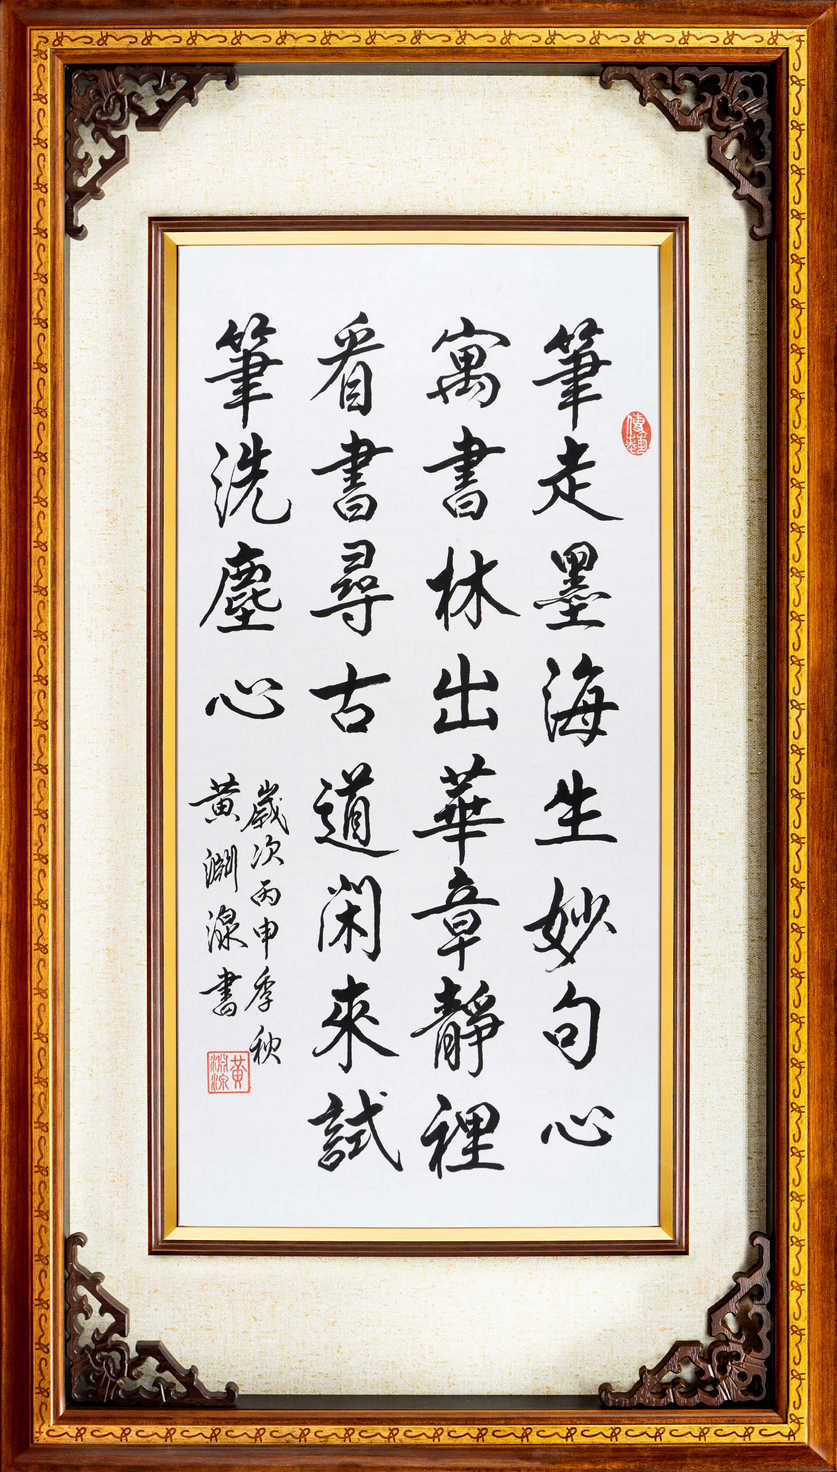 筆走墨海生妙句心
寓書林出華章靜裡
看書尋古道閑來試
筆洗塵心
歲次丙申季秋
黃淵湶書